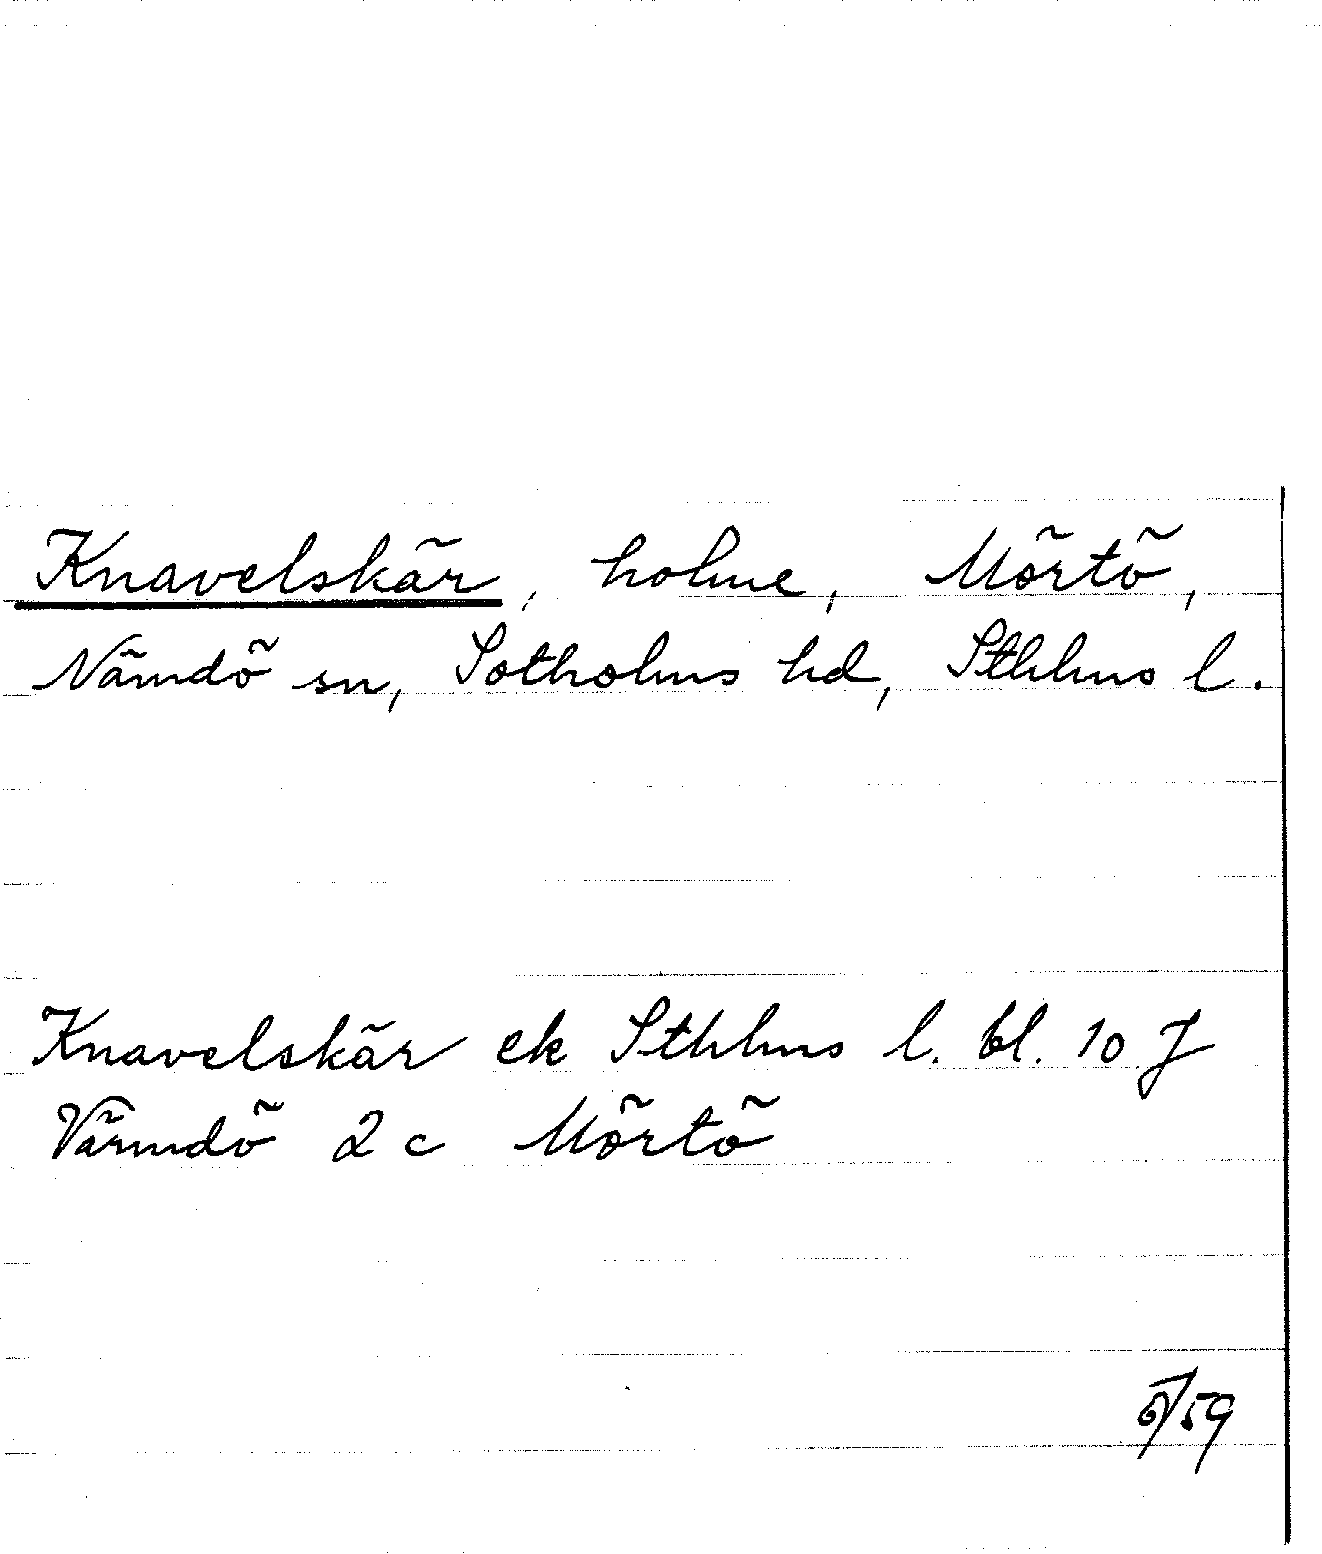 Knavelskär, holme, Mörtö,
Nämdö sn, Sotholms hd, Sthlms l.
Knavelskär ek Sthlms l. bl. 10 J
Värmdö 2c Mörtö
6/59